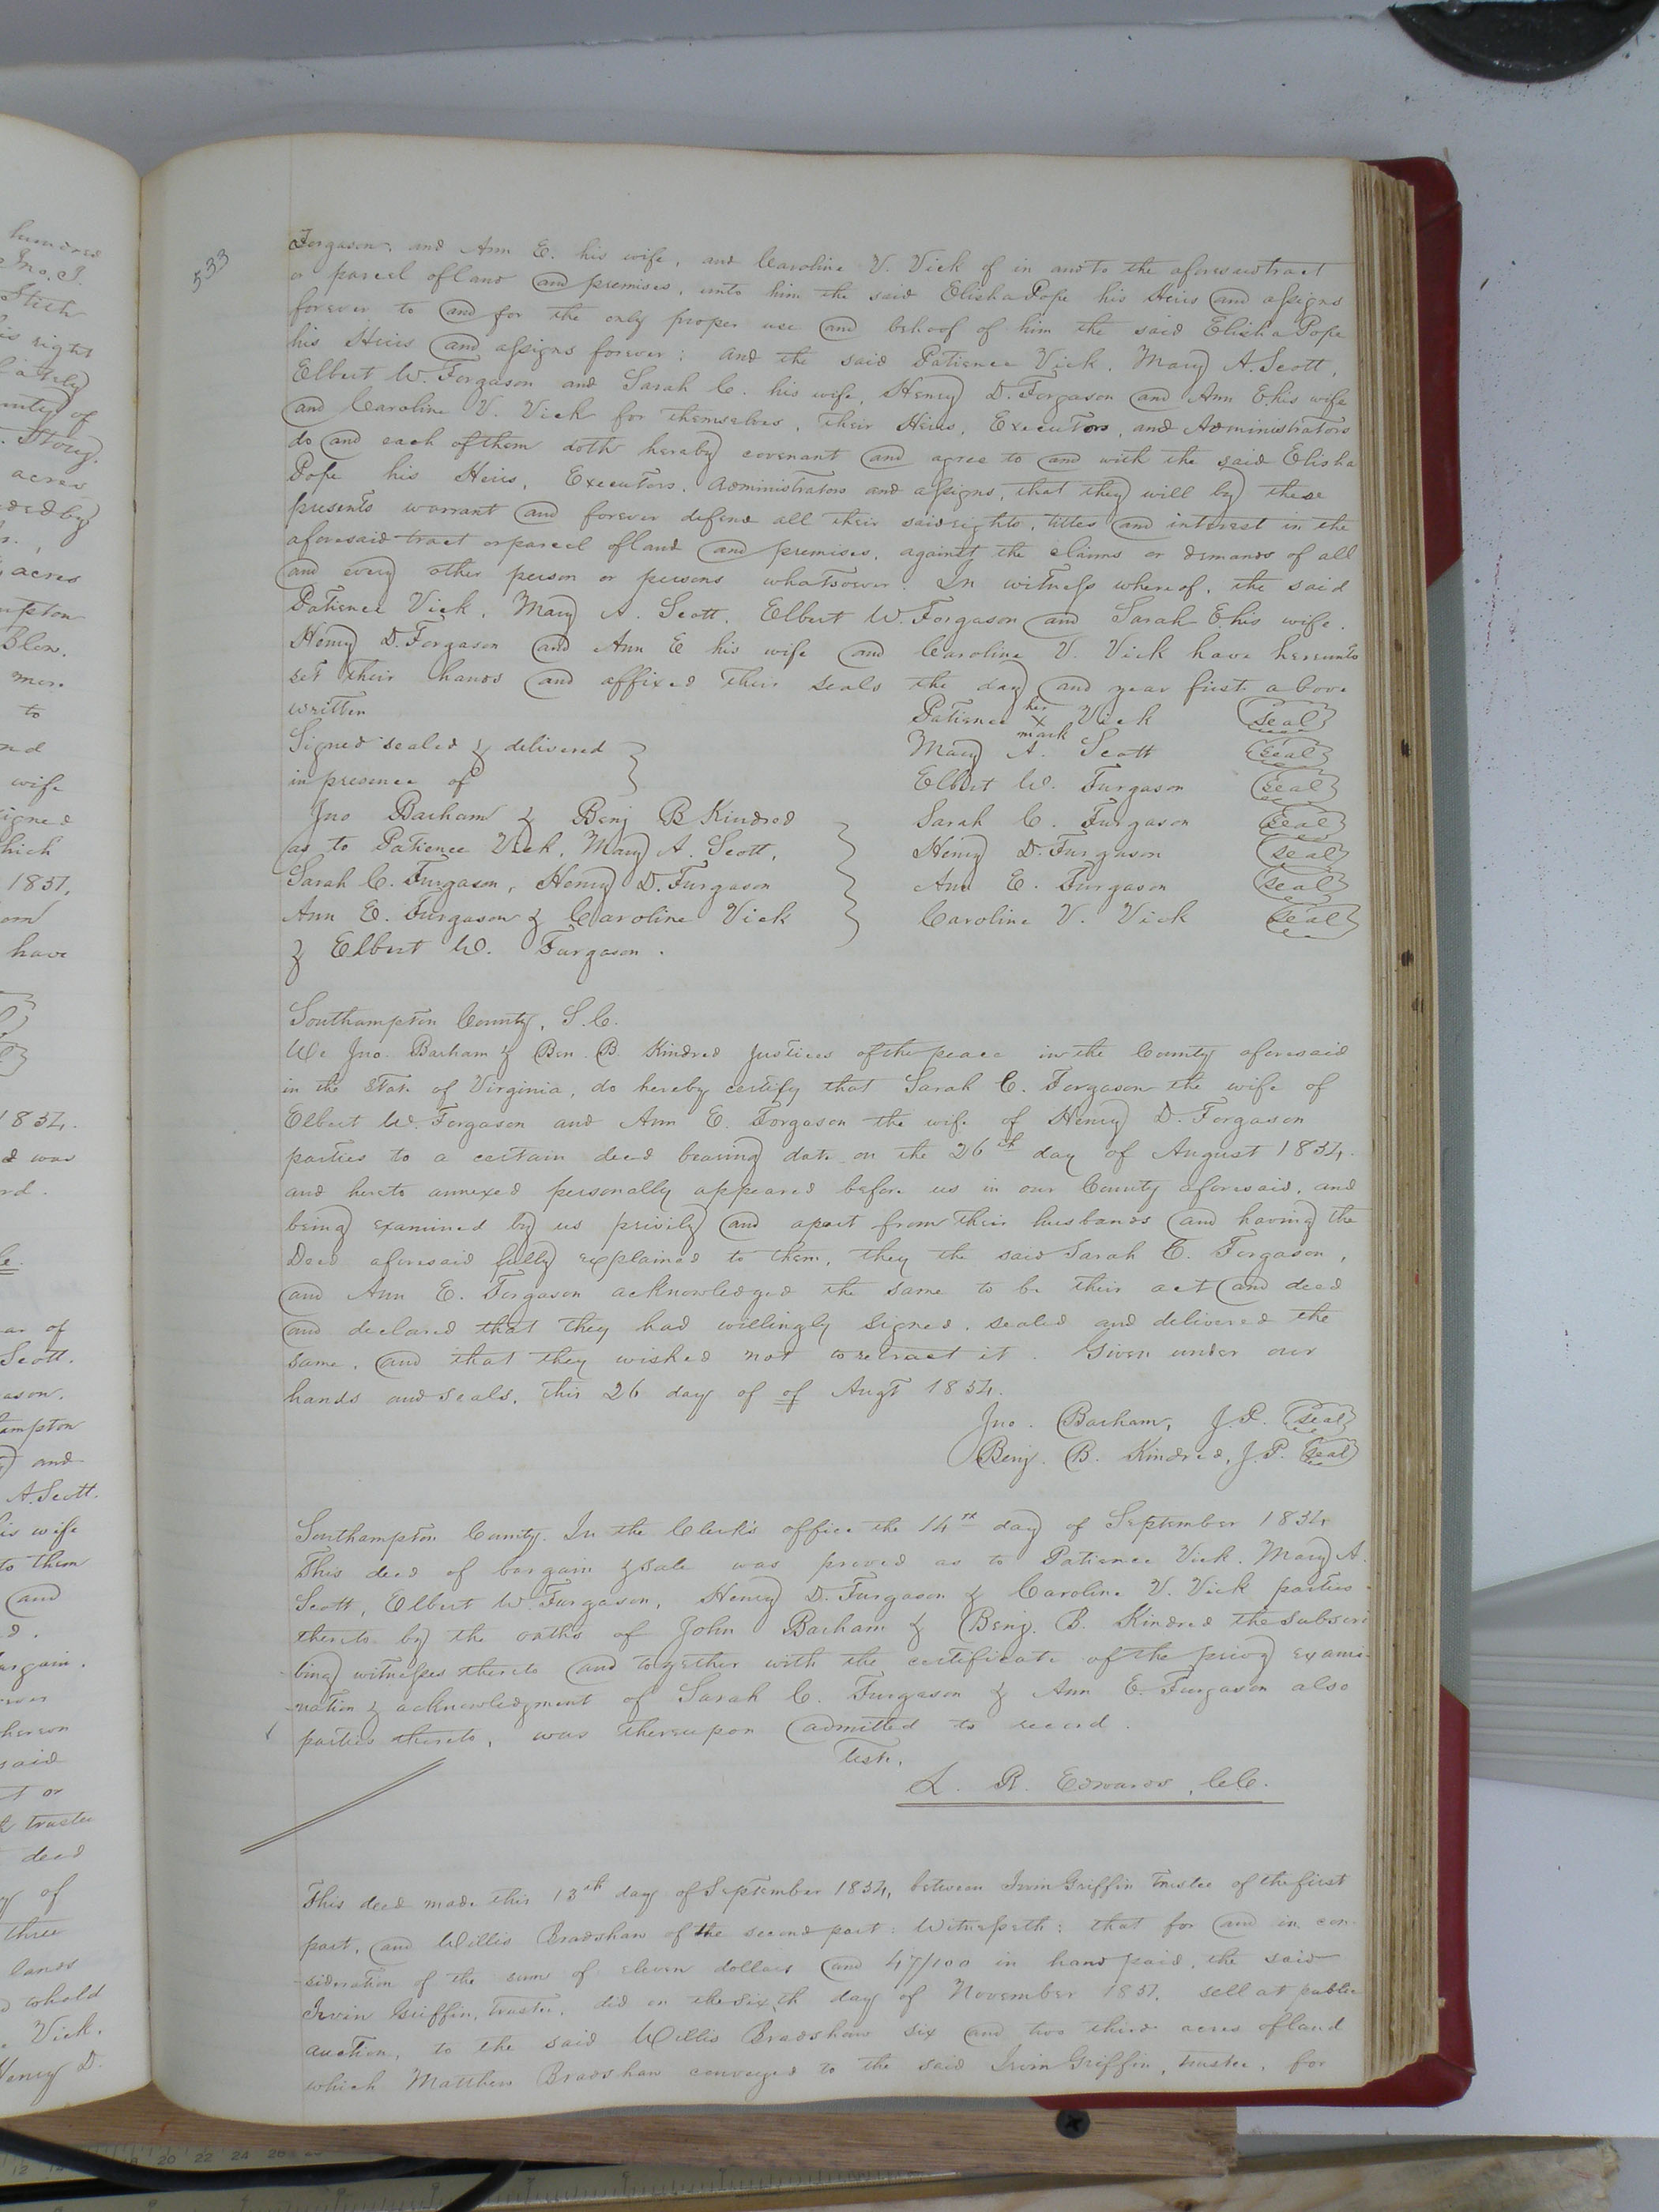 533
Forgason, and Ann E. his wife, and Caroline V. Vick of in and to the aforesaid tract
or parcel of land and premises, unto him the said Elisha Pope his Heirs and assigns
forever to and for the only proper use and behoof of him the said Elisha Pope
his Heirs and assigns forever: and the said Patience Vick, Mary A. Scott,
Elbert W. Forgason and Sarah C. his wife, Henry D. Forgason and Ann E. his wife
and Caroline V. Vick for themselves, their Heirs, Executors, and Administrators
do and each of them doth hereby covenant and agree to and with the said Elisha
Pope his Heirs, Executors, Administrators and assigns, that they will by these
presents warrant and forever defend all their said rights, titles and interest in the
aforesaid tract or parcel of land and premises, against the claims or demands of all
and every other person or persons whatsoever. In witness whereof, the said
Patience Vick, Mary A. Scott, Elbert W. Forgason and Sarah E. his wife.
Henry D. Forgason and Ann E his wife and Caroline V. Vick have hereunto
set their hands and affixed their seals the day and year first above
written
Patience her x mark Vick (seal)
Signed sealed & delivered
Mary A. Scott (seal)
in presence of
Elbert W. Furgason (seal)
Jno Barham & Benj B Kindred
Sarah C. Furgason (seal)
as to Patience Vick, Mary A. Scott,
Henry D. Furgason (seal)
Sarah C. Furgason, Henry D. Furgason
Ann E. Furgason (seal)
Ann E. Furgason & Caroline Vick
Caroline V. Vick (seal)
& Elbert W. Furgason.
Southampton County, S.C.
We Jno. Barham & Ben. B. Kindred Justices of the peace in the County aforesaid
in the State of Virginia, do hereby certify that Sarah C. Forgason the wife of
Elbert W. Forgason and Ann E. Forgason the wife of Henry D. Forgason
parties to a certain deed bearing date on the 26th day of August 1854.
and hereto annexed personally appeared before us in our County aforesaid, and
being examined by us privily and apart from their husbands and having the
Deed aforesaid fully explained to them, they the said Sarah C. Forgason,
and Ann E. Forgason acknowledged the same to be their act and deed
and declared that they had willingly signed, sealed and delivered the
same, and that they wished not to retract it. Given under our
hands and seals, this 26 day of of Augt 1854.
Jno. Barham, J.P. (seal)
Benj. B. Kindred, J.P. (seal)
Southampton County. In the Clerk's office the 14th day of September 1854
This deed of bargain & sale was proved as to Patience Vick, Mary A.
Scott, Elbert W. Furgason, Henry D. Furgason & Caroline V. Vick parties
thereto by the oaths of John Barham & Benj. B. Kindred the subscri
-bing witnesses thereto and together with the certificate of the privy exami-
-nation & acknowledgment of Sarah C. Furgason & Ann E. Furgason also
parties thereto, was thereupon admitted to record.
Teste,
L. R. Edwards, C.C.
This deed made this 13th day of September 1854, between Irvin Griffin trustee of the first
part, and Willis Bradshaw of the second part: Witnesseth: that for and in con-
-sideration of the sum of eleven dollars and 47/100 in hand paid, the said
Irvin Griffin, trustee, did on the sixth day of November 1851, sell at public
auction, to the said Willis Bradshaw six and two third acres of land
which Matthew Bradshaw conveyed to the said Irvin Griffin, trustee, for